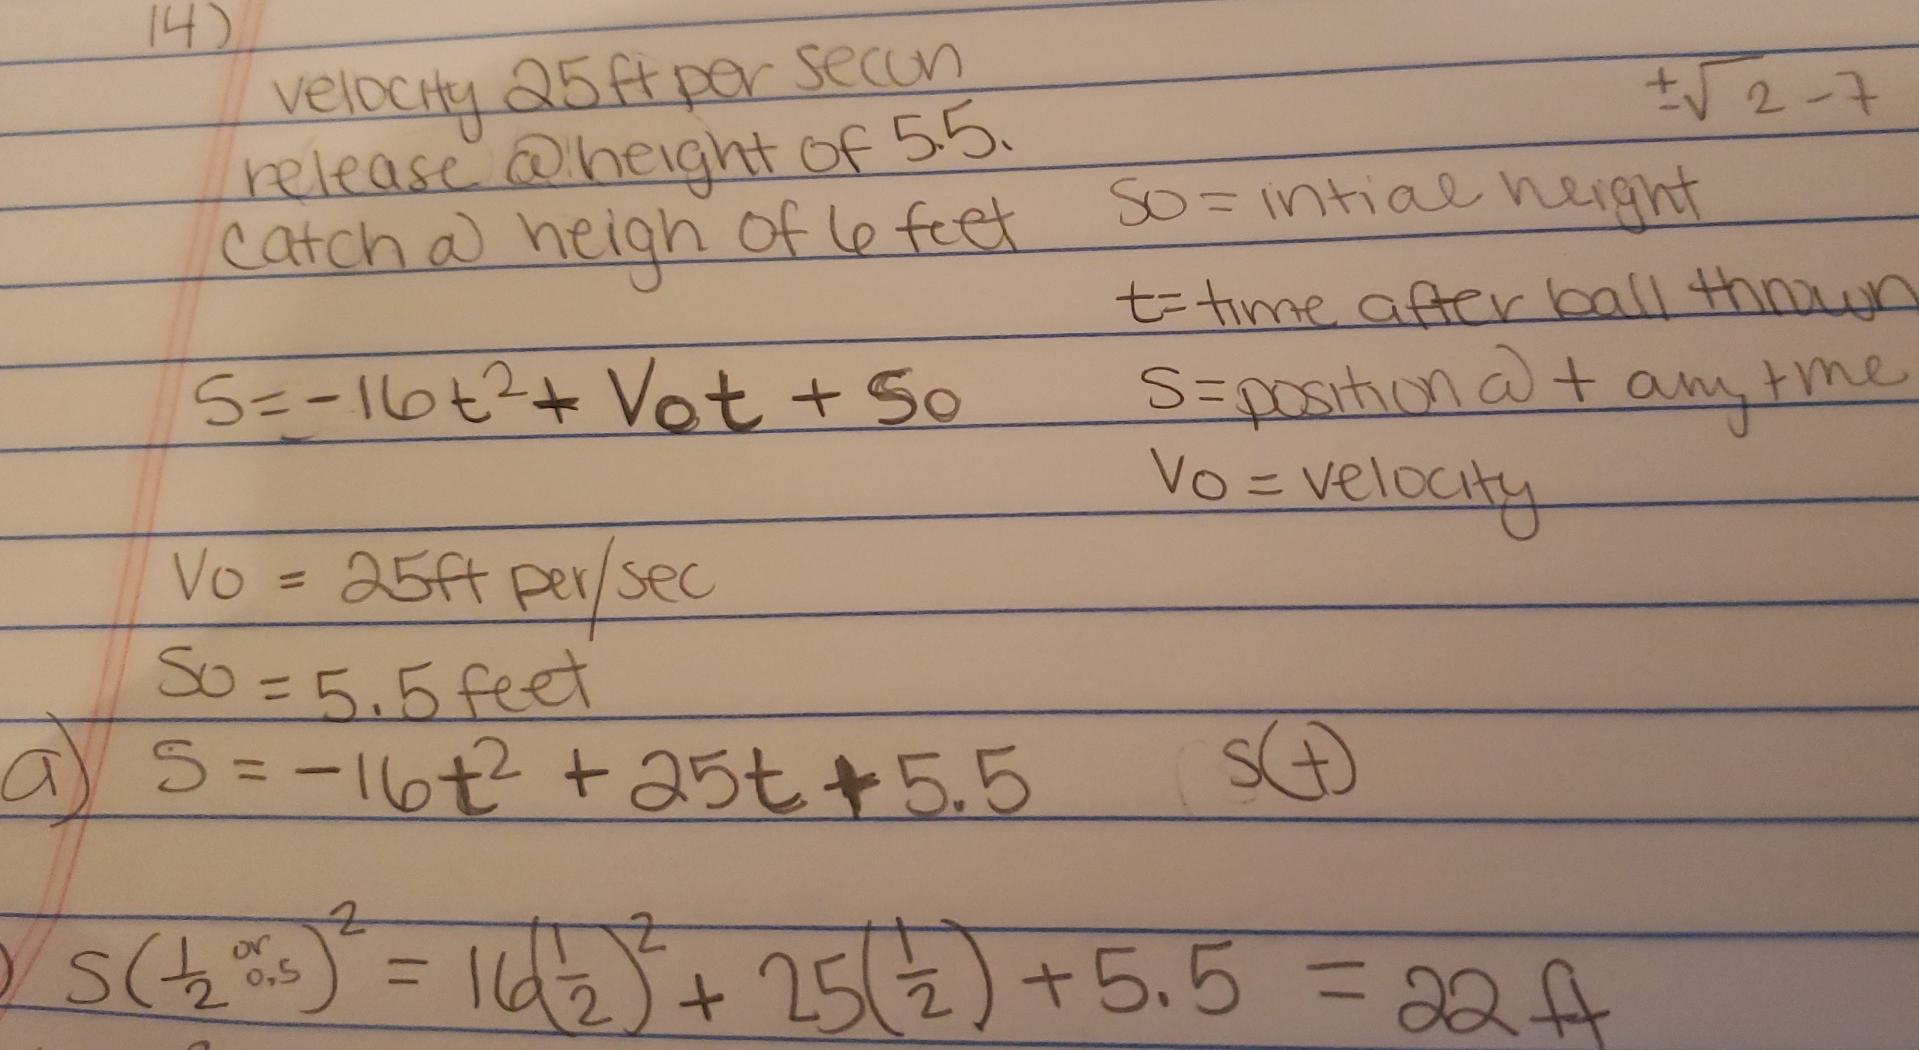 14)
velocity 25ft per secun
release @ height of 5.5.
catch @ heigh of 6 feet
±√2-7
So = intiae height
t= time after ball thrown
S=-16t²+ Vot + So
S=position @ t any tme
Vo = velocity
Vo = 25ft per/sec
So = 5.5 feet
a) S = -16t² + 25t + 5.5 S(t)
) S(1/2 or 0.5)² = 16(1/2)² + 25(1/2) + 5.5 = 22 ft